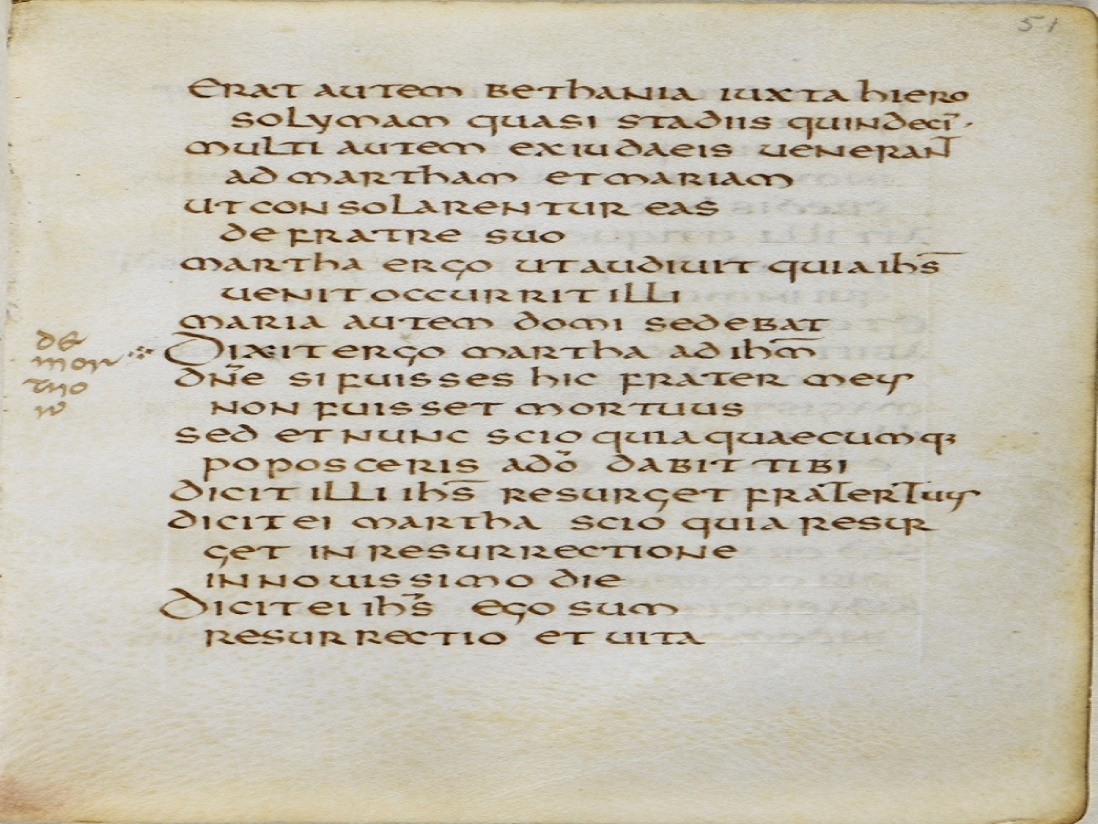 51
Erat autem bethania iuxta hiero
solymam quasi stadiis quindeci̅ ·
multi autem ex iudaeis ueneran̅
ad martham et mariam
ut consolarentur eas
de fratre suo
martha ergo ut audiuit quia ihs̅
uenit occurrit illi
maria autem domi sedebat
de
mor
tuo
ru
Dixit ergo martha ad ihm̅
dn̅e si fuisses hic frater meus
non fuisset mortuus
sed et nunc scio quia quaecumq;
poposceris a do̅ dabit tibi
dicit illi ihs̅ resurget frater tuus
dicit ei martha scio quia resur
get in resurrectione
in nouissimo die
Dicit ei ihs̅ ego sum
resurrectio et uita